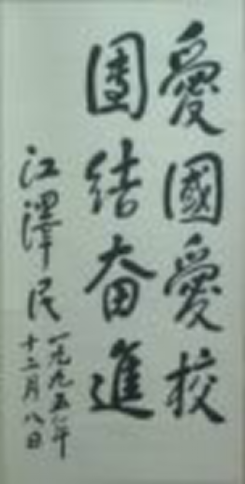 愛國愛校
團结奋進
江澤民
一九九五年
十二月八日